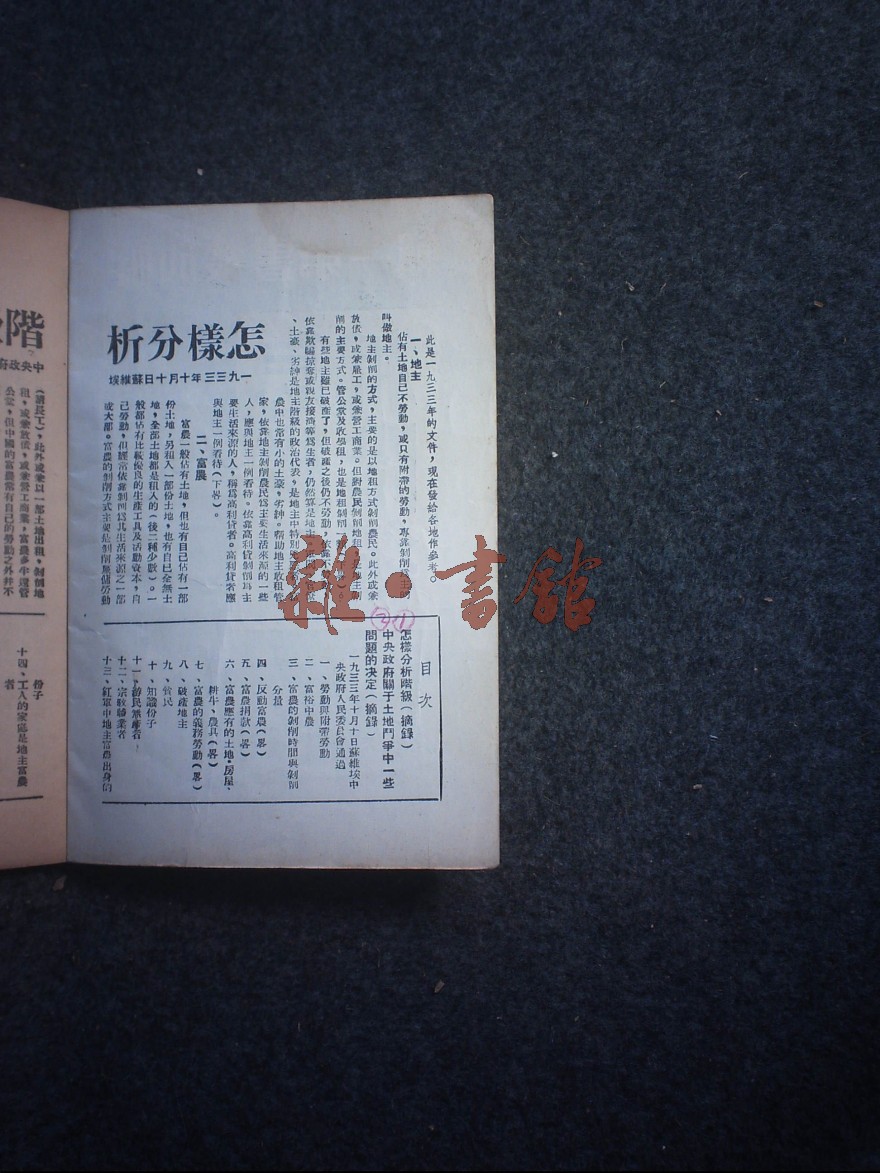 此是一九三三年的文件，現在發給各地作參考。
一、地主
佔有土地自己不勞動，或只有附帶的勞動，專靠剝削爲生的
叫做地主。
地主剝削的方式，主要的是以地租方式剝削農民。此外或兼
放債，或兼雇工，或兼營工商業。但對農民剝削地租是地主剝
削的主要方式。管公堂及收學租，也是地租剝削
有些地主雖已破產了，但破產之後仍不勞動，依靠
依靠欺騙掠奪或親友接濟等爲生者，仍然算是地主
、土豪、劣紳是地主階級的政治代表，是地主中特別
怎樣分析
一九三三年十月十日蘇維埃
農中也常有小的土豪，劣紳。幫助地主收租管
家，依靠地主剝削農民爲主要生活來源的一些
人，應與地主一例看待。依靠高利貸剝削爲主
要生活來源的人，稱爲高利貸者。高利貸者應
與地主一例看待（下畧）。
二、富農
富農一般佔有土地，但也有自己佔有一部
份土地，另租入一部份土地，也有自己全無土
地，全部土地都是租入的（後二種少數）。一
般都佔有比較優良的生產工具及活動資本，自
己勞動，但經常依靠剝削爲其生活來源之一部
或大部。富農的剝削方式主要是剝削雇傭勞動
目次
①怎樣分析階級（摘錄）
②中央政府關于土地鬥爭中一些
問題的決定（摘錄）
一九三三年十月十日蘇維埃中
央政府人民委員會通過
一、勞動與附帶勞動
二、富裕中農
三、富農的剝削時間與剝削
分量
四、反動富農（畧）
五、富農捐款（畧）
六、富農應有的土地・房屋・
耕牛・農具（畧）
七、富農的義務勞動（畧）
八、破產地主
九、貧民
十、知識份子
十一、游民無產者
十二、宗敎職業者
十三、紅軍中地主富農出身的
階
中央政府
（請長工），此外或兼以一部土地出租，剝削地
租，或兼放債，或兼營工商業，富農多半還管
公堂，但中國的富農常有自己的勞動之外并不
份子
十四、工人的家庭是地主富農
者
雜・書館